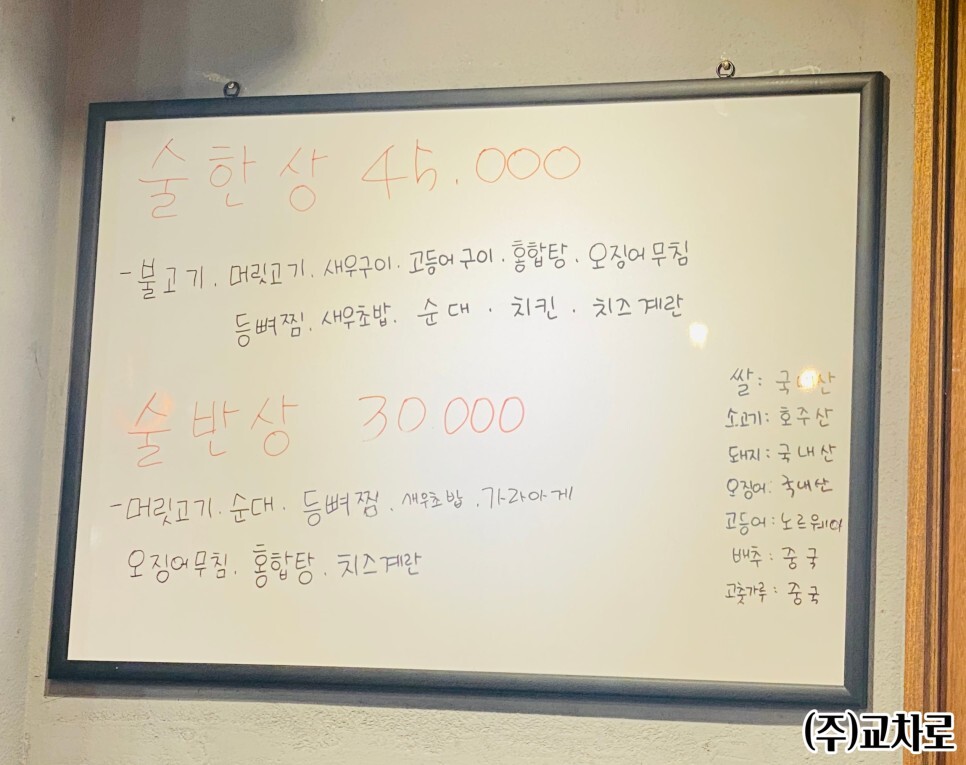 술한상 45.000
- 불고기. 머릿고기. 새우구이. 고등어구이. 홍합탕. 오징어무침
등뼈찜. 새우초밥. 순대. 치킨. 치즈계란
술반상 30.000
- 머릿고기. 순대. 등뼈찜. 새우초밥. 가라아게
오징어무침. 홍합탕. 치즈계란
쌀: 국내산
소고기: 호주산
돼지: 국내산
오징어: 국내산
고등어: 노르웨이
배추: 중국
고춧가루: 중국
(주)교차로